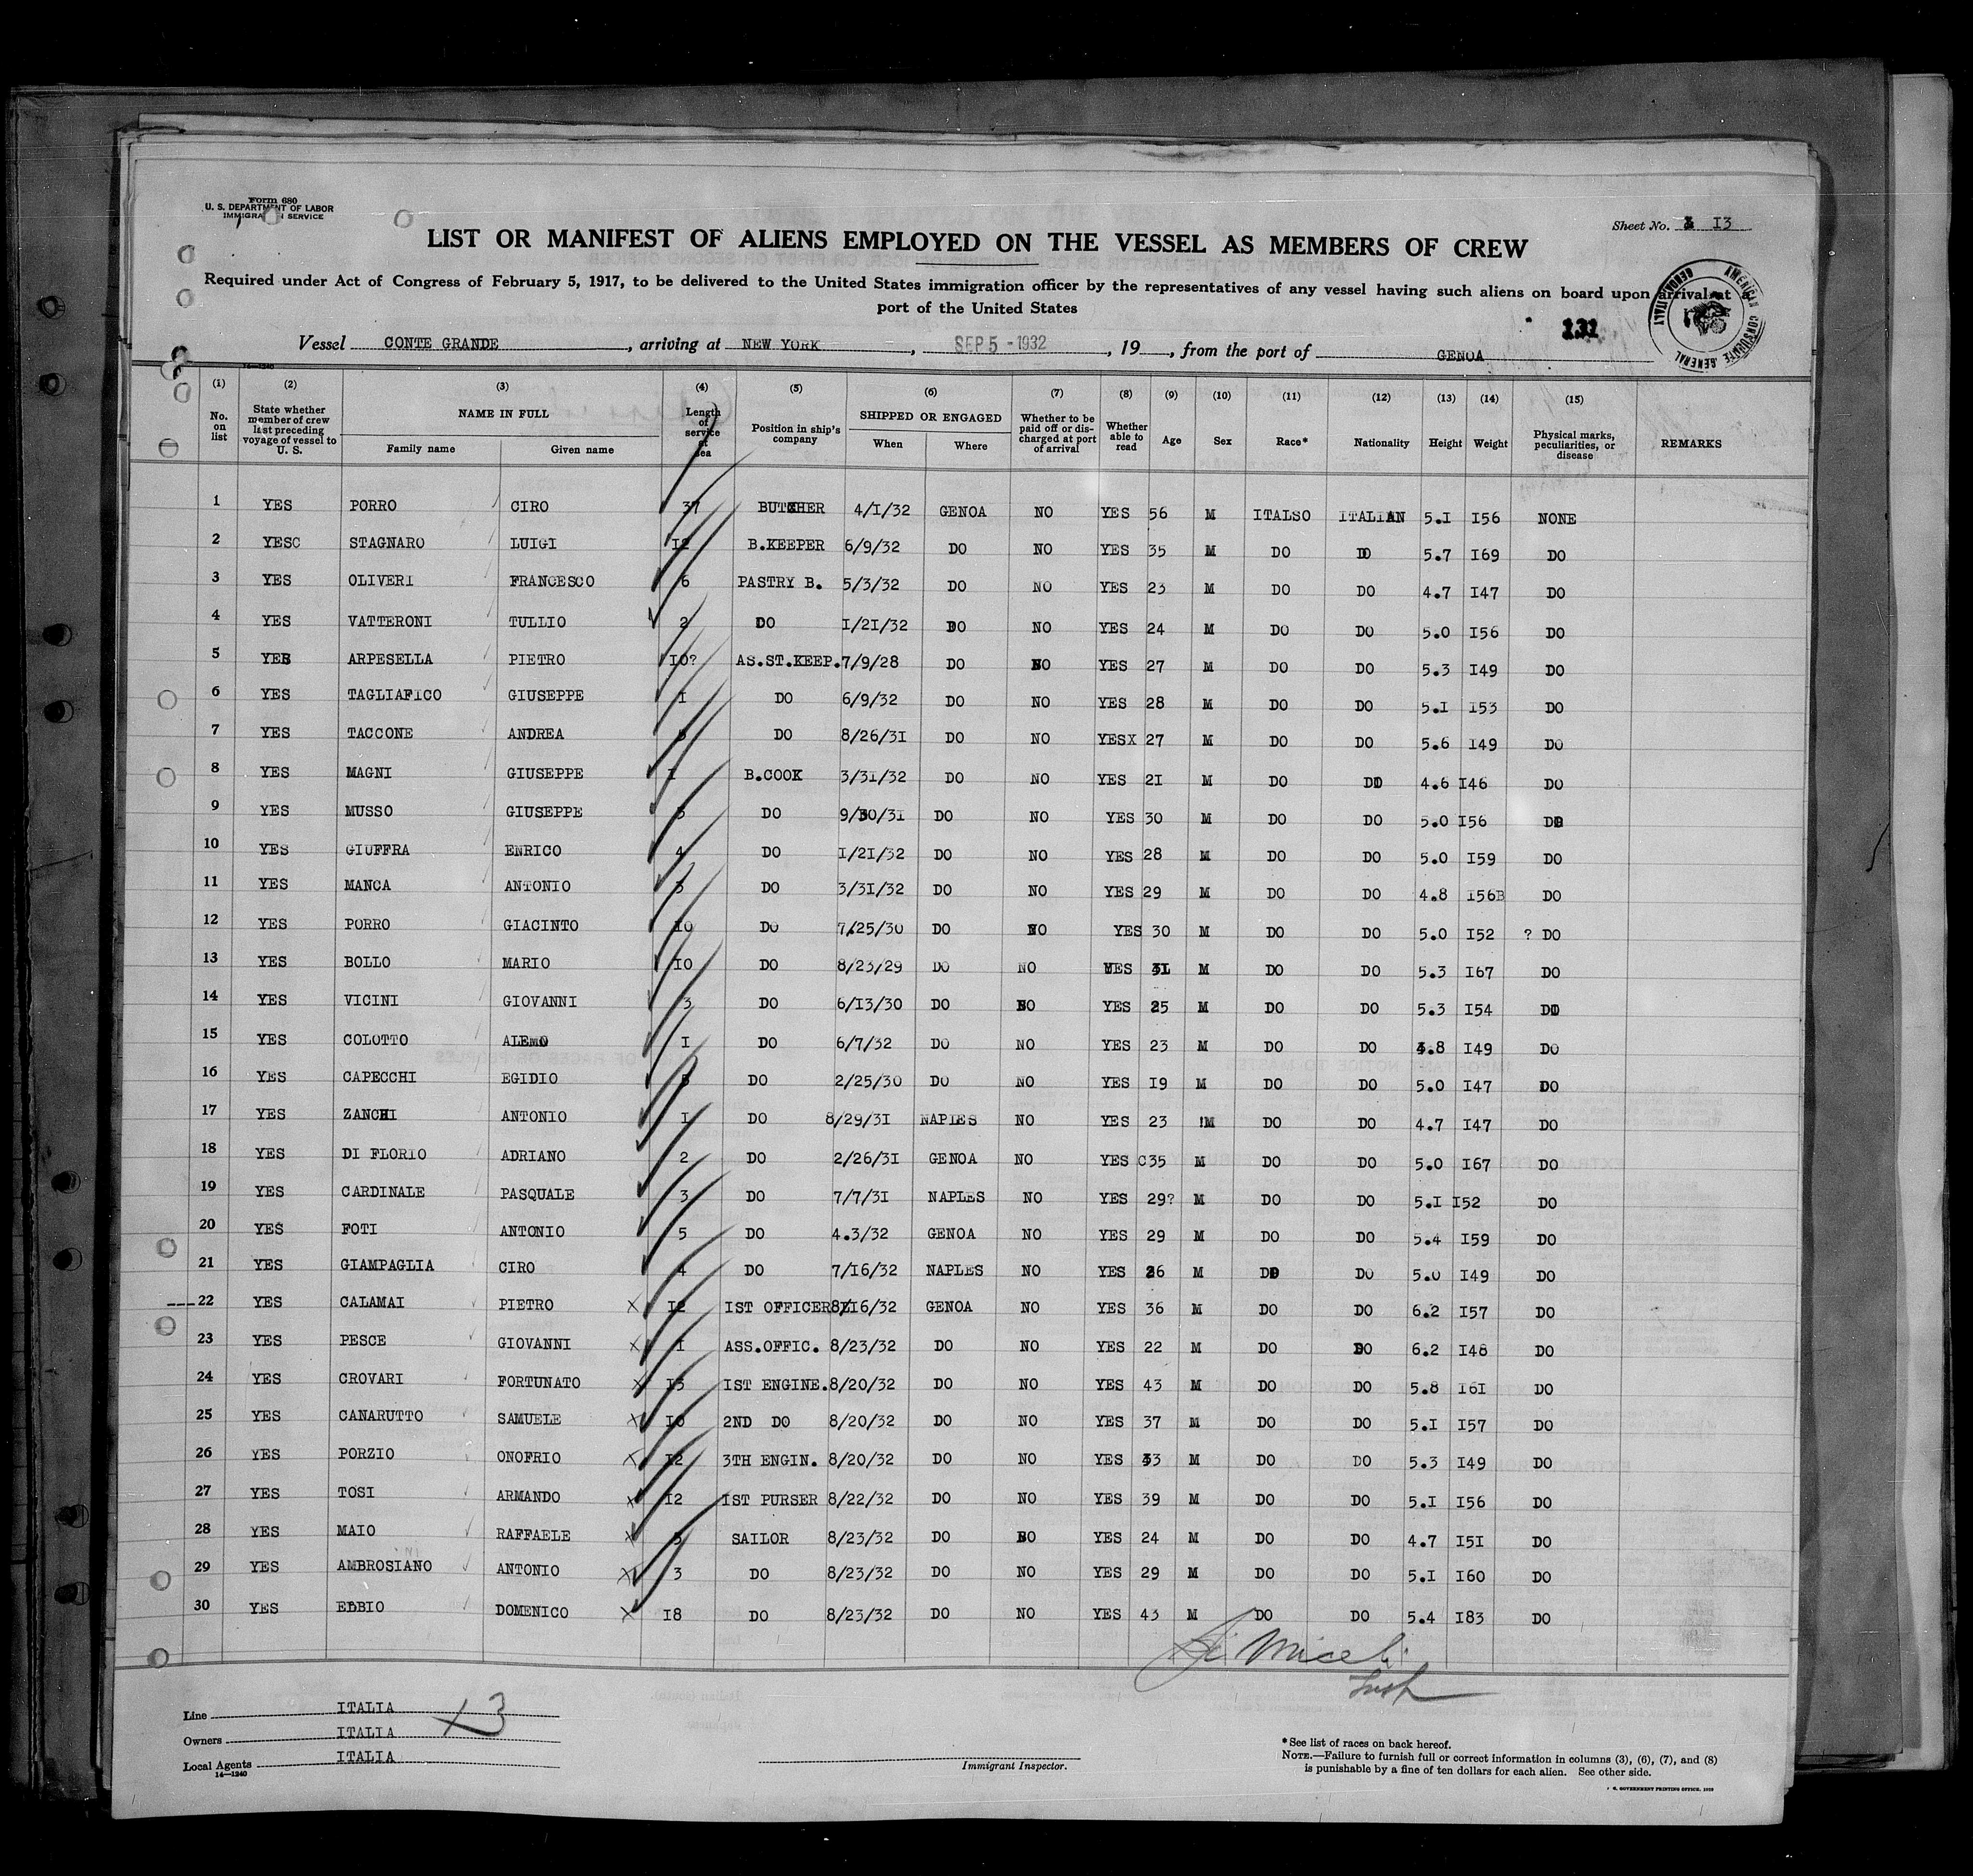 Form 680
U. S. DEPARTMENT OF LABOR
IMMIGRATION SERVICE
Sheet No. 13
LIST OR MANIFEST OF ALIENS EMPLOYED ON THE VESSEL AS MEMBERS OF CREW
Required under Act of Congress of February 5, 1917, to be delivered to the United States immigration officer by the representatives of any vessel having such aliens on board upon arrival at
port of the United States
AMERICAN CONSULATE GENERAL GENOA ITALY
131
Vessel CONTE GRANDE, arriving at NEW YORK, SEP 5 - 1932, 19 , from the port of GENOA
14—1240
(1) (2) (3) (4) (5) (6) (7) (8) (9) (10) (11) (12) (13) (14) (15)
No. on list State whether member of crew last preceding voyage of vessel to U. S. NAME IN FULL Family name Given name Length of service at sea Position in ship's company SHIPPED OR ENGAGED When Where Whether to be paid off or discharged at port of arrival Whether able to read Age Sex Race* Nationality Height Weight Physical marks, peculiarities, or disease REMARKS
1 YES PORRO CIRO 37 BUTCHER 4/1/32 GENOA NO YES 56 M ITALSO ITALIAN 5.I I56 NONE
2 YESC STAGNARO LUIGI I2 B.KEEPER 6/9/32 DO NO YES 35 M DO DO 5.7 I69 DO
3 YES OLIVERI FRANCESCO 6 PASTRY B. 5/3/32 DO NO YES 23 M DO DO 4.7 I47 DO
4 YES VATTERONI TULLIO 2 DO I/2I/32 DO NO YES 24 M DO DO 5.0 I56 DO
5 YES ARPESELLA PIETRO IO? AS.ST.KEEP. 7/9/28 DO NO YES 27 M DO DO 5.3 I49 DO
6 YES TAGLIAFICO GIUSEPPE I DO 6/9/32 DO NO YES 28 M DO DO 5.I I53 DO
7 YES TACCONE ANDREA DO 8/26/3I DO NO YESX 27 M DO DO 5.6 I49 DO
8 YES MAGNI GIUSEPPE I B.COOK 3/3I/32 DO NO YES 2I M DO DO 4.6 I46 DO
9 YES MUSSO GIUSEPPE DO 9/30/3I DO NO YES 30 M DO DO 5.0 I56 DO
10 YES GIUFFRA ENRICO 4 DO I/2I/32 DO NO YES 28 M DO DO 5.0 I59 DO
11 YES MANCA ANTONIO 3 DO 3/3I/32 DO NO YES 29 M DO DO 4.8 I56B DO
12 YES PORRO GIACINTO IO DO 7/25/30 DO NO YES 30 M DO DO 5.0 I52 ? DO
13 YES BOLLO MARIO IO DO 8/23/29 DO NO YES 3I M DO DO 5.3 I67 DO
14 YES VICINI GIOVANNI 3 DO 6/I3/30 DO NO YES 25 M DO DO 5.3 I54 DO
15 YES COLOTTO I DO 6/7/32 DO NO YES 23 M DO DO 4.8 I49 DO
16 YES CAPECCHI EGIDIO DO 2/25/30 DO NO YES I9 M DO DO 5.0 I47 DO
17 YES ZANCHI ANTONIO I DO 8/29/3I NAPLES NO YES 23 M DO DO 4.7 I47 DO
18 YES DI FLORIO ADRIANO 2 DO 2/26/3I GENOA NO YES C35 M DO DO 5.0 I67 DO
19 YES CARDINALE PASQUALE 3 DO 7/7/3I NAPLES NO YES 29? M DO DO 5.I I52 DO
20 YES FOTI ANTONIO 5 DO 4.3/32 GENOA NO YES 29 M DO DO 5.4 I59 DO
21 YES GIAMPAGLIA CIRO 4 DO 7/I6/32 NAPLES NO YES 26 M DO DO 5.0 I49 DO
22 YES CALAMAI PIETRO X I2 IST OFFICER 8/I6/32 GENOA NO YES 36 M DO DO 6.2 I57 DO
23 YES PESCE GIOVANNI X I ASS.OFFIC. 8/23/32 DO NO YES 22 M DO DO 6.2 I48 DO
24 YES CROVARI FORTUNATO X I3 IST ENGINE. 8/20/32 DO NO YES 43 M DO DO 5.8 I6I DO
25 YES CANARUTTO SAMUELE X IO 2ND DO 8/20/32 DO NO YES 37 M DO DO 5.I I57 DO
26 YES PORZIO ONOFRIO X I2 3TH ENGIN. 8/20/32 DO NO YES 33 M DO DO 5.3 I49 DO
27 YES TOSI ARMANDO X I2 IST PURSER 8/22/32 DO NO YES 39 M DO DO 5.I I56 DO
28 YES MAIO RAFFAELE X SAILOR 8/23/32 DO NO YES 24 M DO DO 4.7 I5I DO
29 YES AMBROSIANO ANTONIO X 3 DO 8/23/32 DO NO YES 29 M DO DO 5.I I60 DO
30 YES DOMENICO X I8 DO 8/23/32 DO NO YES 43 M DO DO 5.4 I83 DO
Line ITALIA
Owners ITALIA
Local Agents ITALIA
14—1240
X3
Immigrant Inspector.
*See list of races on back hereof.
NOTE.—Failure to furnish full or correct information in columns (3), (6), (7), and (8)
is punishable by a fine of ten dollars for each alien. See other side.